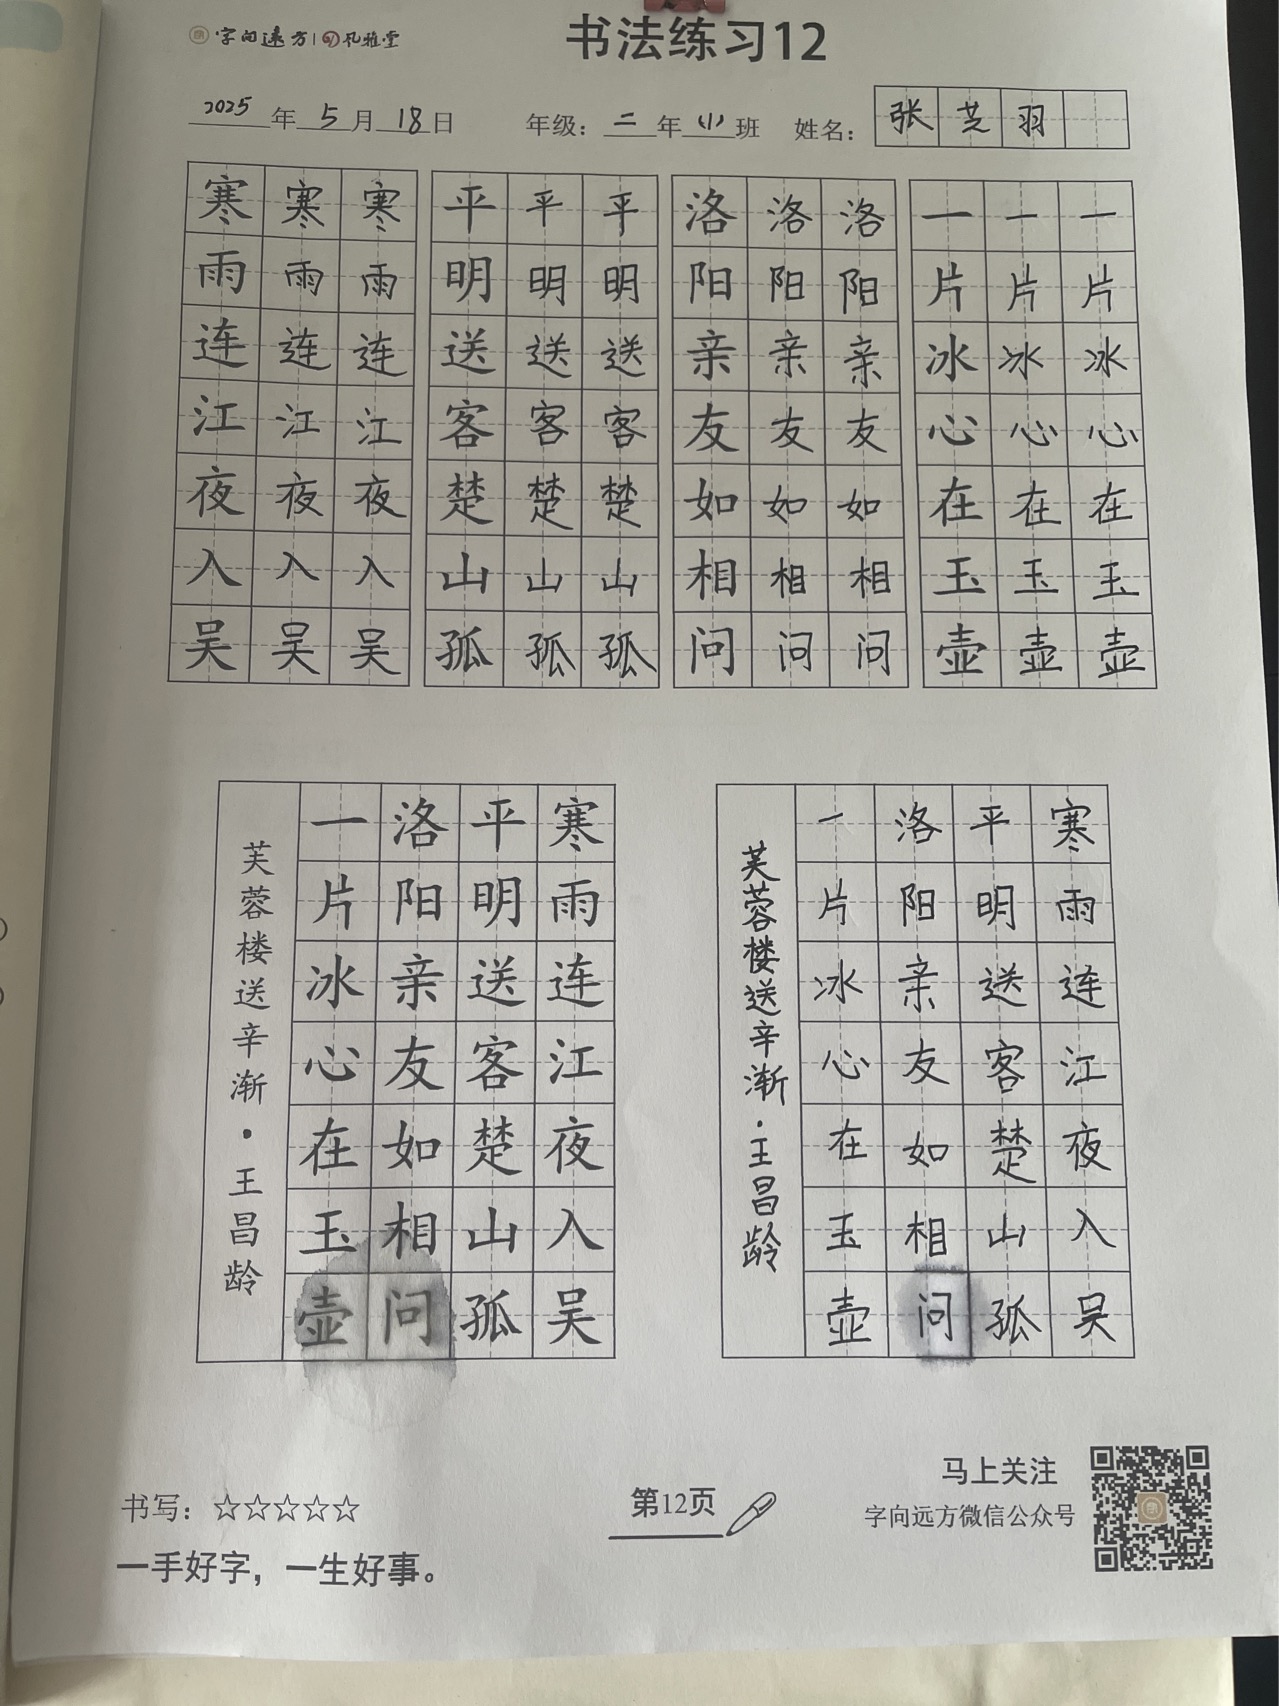 字向远方 | 孔雅堂
书法练习12
2025年5月18日 年级：二年(1)班 姓名：张芝羽
寒寒寒 平平平 洛洛洛 一一一
雨雨雨 明明明 阳阳阳 片片片
连连连 送送送 亲亲亲 冰冰冰
江江江 客客客 友友友 心心心
夜夜夜 楚楚楚 如如如 在在在
入入入 山山山 相相相 玉玉玉
吴吴吴 孤孤孤 问问问 壶壶壶
寒雨连江夜入吴
平明送客楚山孤
洛阳亲友如相问
一片冰心在玉壶
芙蓉楼送辛渐·王昌龄
寒雨连江夜入吴
平明送客楚山孤
洛阳亲友如相问
一片冰心在玉壶
芙蓉楼送辛渐·王昌龄
书写：☆☆☆☆☆
一手好字，一生好事。
第12页
马上关注
字向远方微信公众号